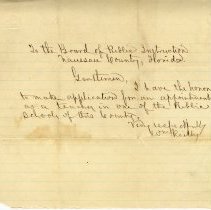 To the Board of Public Instruction
Nassau County, Florida
Gentlemen,
I have the honor
to make application for an appointment
as a teacher in one of the Public
Schools of this County.
Very respectfully